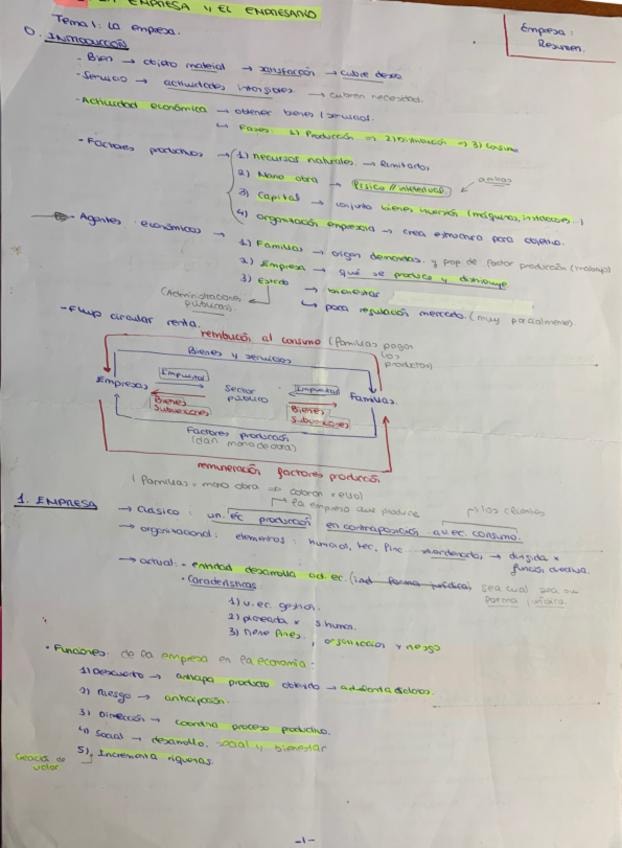 EMPRESA Y EL EMPRESARIO
Tema 1: La empresa.
Empresa:
Resumen.
0. INTRODUCCIÓN
- Bien → objeto material → satisfacción → cubre deseo
- Servicio → actividades intangibles → cubren necesidad.
- Actividad económica → obtener bienes / servicios.
↳ Fases: 1) Producción → 2) Distribución → 3) Consumo
- Factores productivos → 1) Recursos naturales → limitados
2) Mano obra → Física // intelectual ← ambas
3) Capital → conjunto bienes inversión (máquinas, instalaciones.)
4) Organización empresa → crea estructura para objetivo.
→ Agentes económicos →
1) Familias → origen demandas. y prop de factor producción (trabajo)
2) Empresa → qué se produce y distribuye
3) Estado → bienestar
(Administraciones públicas)
↳ para regulación mercado. (muy parcialmente)
- Flujo circular renta.
retribución al consumo (familias pagan
los
productos)
Bienes y servicios
Empresas
Impuestos
Sector
público
Impuestos
Familias
Bienes
Subvenciones
Bienes
Subvenciones
Factores producción
(dan mano de obra)
remuneración factores producción
(familias → mano obra → cobran x ello)
la empresa que produce
p. los clientes
1. EMPRESA → Clásico: un. ec. producción en contraposición a u. ec. consumo.
→ organizacional: elementos: humanos, tec, finc → dirigida x
función directiva.
→ actual: • entidad desarrolla act. ec. (ind forma jurídica) sea cual sea su
forma jurídica.
• Características
1) u. ec. gestión.
2) planeada x s. human.
3) tiene fines, organización y riesgo
• Funciones: de la empresa en la economía:
1) Descuento → anticipa producto obtenido →
2) Riesgo → anticipación.
3) Dirección → coordina proceso productivo.
4) Social → desarrollo. social y bienestar
Creación de
valor
5) Incrementa riquezas.
-1-